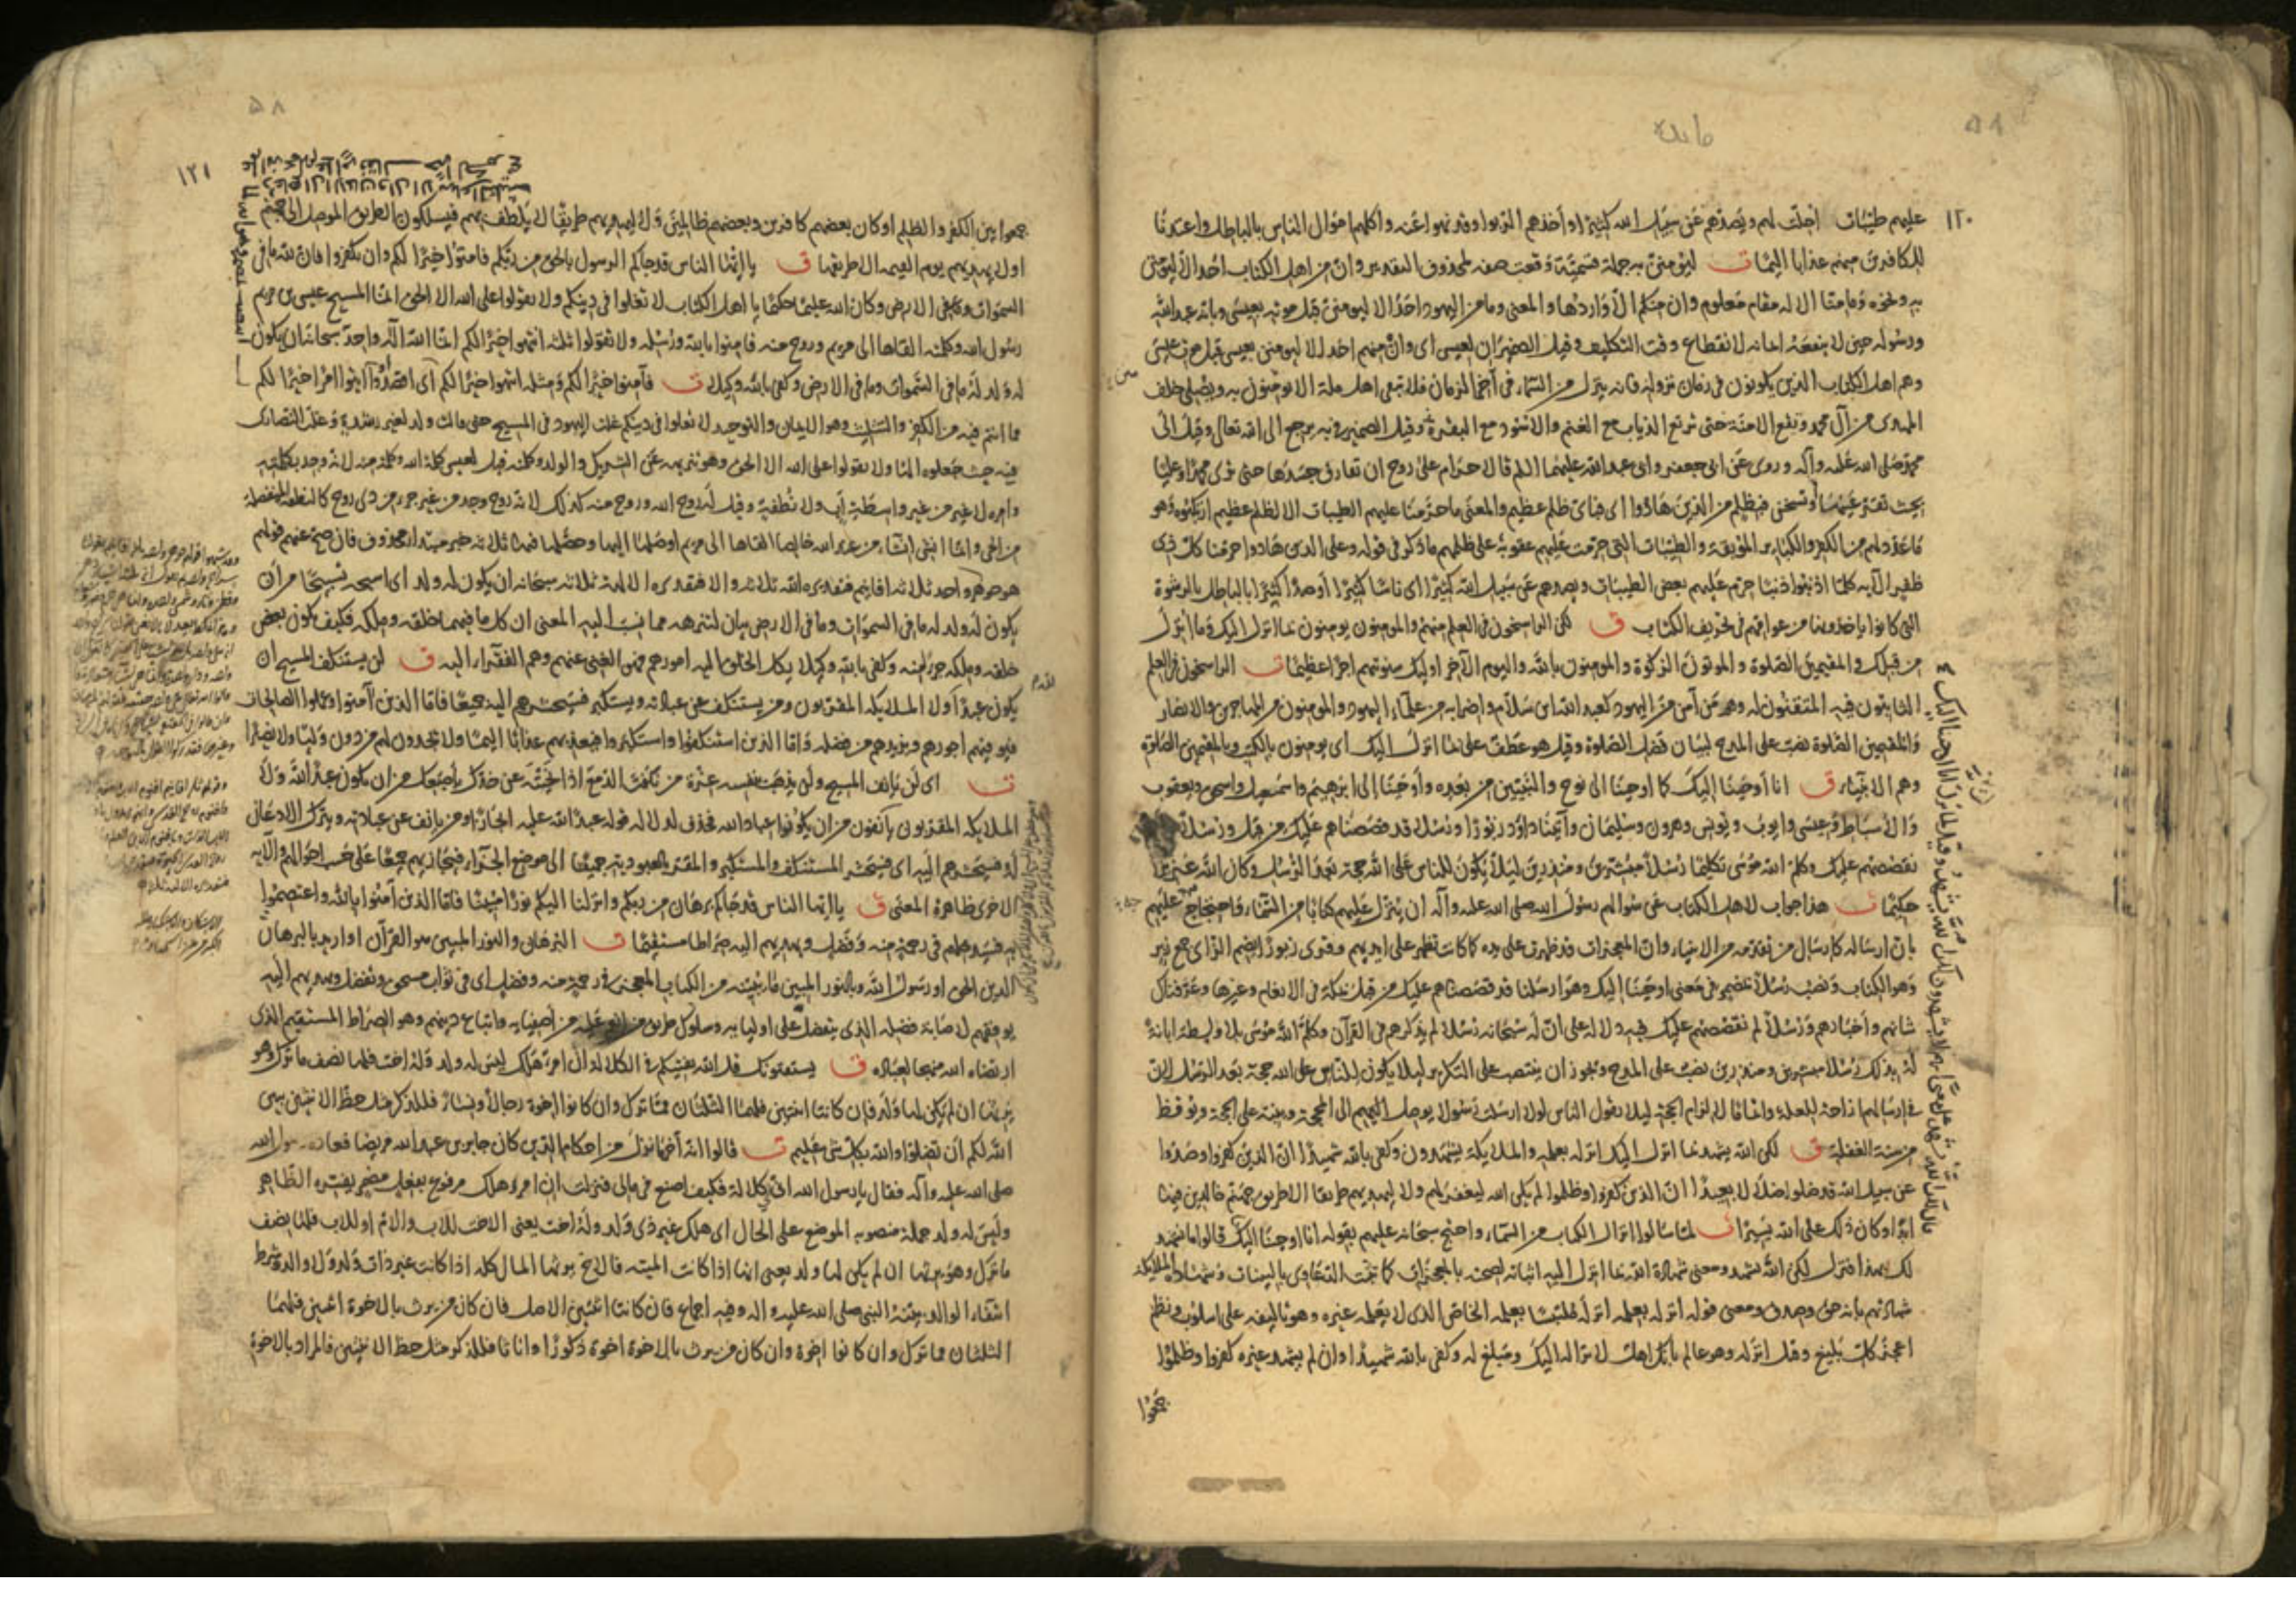 مائده
١٢٠
عليهم طيبات احلت لهم وبصدهم عن سبيل الله كثيرا واخذهم الربوا وقد نهوا عنه واكلهم اموال الناس بالباطل واعتدنا
للكافرين منهم عذابا اليما ت ليؤمنن به جملة قسمية وقعت صفة لمحذوف التقدير وان من اهل الكتاب احد الا ليؤمنن
به ونحوه وما منا الا له مقام معلوم وان منكم الا واردها والمعنى وما من اليهود احد الا ليؤمنن قبل موته بعيسى وبانه عبد الله
ورسوله حين لا ينفعه ايمانه لانقطاع وقت التكليف وقيل الضميران لعيسى اى وان منهم احد الا ليؤمنن بعيسى قبل موت عيسى
وهم اهل الكتاب الذين يكونون في زمان نزوله فانه ينزل من السماء في آخر الزمان فلا تبقى اهل ملة الا يؤمنون به ويصلى خلف
المهدى من آل محمد وتقع الامنة حتى ترتع الذياب مع الغنم والاسود مع البقر وقيل الضمير في به يرجع الى الله تعالى وقيل الى
محمد صلى الله عليه وآله وروى عن ابى جعفر وابى عبد الله عليهما السلم قالا حرام على روح ان تفارق جسدها حتى ترى محمدا وعليا
بحيث تقر عينها او تسخن فبظلم من الذين هادوا اى فباى ظلم عظيم والمعنى ما حرمنا عليهم الطيبات الا لظلم عظيم ارتكبوه وهو
ما عدد لهم من الكفر والكبائر الموبقة والطيبات التى حرمت عليهم عقوبة على ظلمهم ما ذكر في قوله وعلى الذين هادوا حرمنا كل ذى
ظفر الآيه كلما اذنبوا ذنبا حرم عليهم بعض الطيبات وبصدهم عن سبيل الله كثيرا اى ناسا كثيرا او صدا كثيرا بالباطل بالرشوة
التى كانوا ياخذونها من عوامهم في تحريف الكتاب ق لكن الراسخون في العلم منهم والمؤمنون يؤمنون بما انزل اليك وما انزل
من قبلك والمقيمين الصلوة والمؤتون الزكوة والمؤمنون بالله واليوم الآخر اوليك سنؤتيهم اجرا عظيما ت الراسخون في العلم
الثابتون فيه المتقنون له وهم من آمن من اليهود كعبد الله ابن سلام واضرابه من علماء اليهود والمؤمنون من المهاجرين والانصار
والمقيمين الصلوة نصب على المدح لبيان فضل الصلوة وقيل هو عطف على بما انزل اليك اى يؤمنون بالكتب وبالمقيمين الصلوة
وهم الانبياء ق انا اوحينا اليك كما اوحينا الى نوح والنبيين من بعده واوحينا الى ابرهيم واسمعيل واسحق ويعقوب
والاسباط وعيسى وايوب ويونس وهرون وسليمان وآتينا داود زبورا ورسلا قد قصصناهم عليك من قبل ورسلا لم
نقصصهم عليك وكلم الله موسى تكليما رسلا مبشرين ومنذرين ليلا يكون للناس على الله حجة بعد الرسل وكان الله عزيزا
حكيما ت هذا جواب لاهل الكتاب عن سؤالهم رسول الله صلى الله عليه وآله ان ينزل عليهم كتابا من السماء فاحتجاج عليهم
بان ارساله كارسال من تقدمه من الانبياء وان المعجزات قد ظهرت على يده كما كانت تظهر على ايديهم وقرى زبورا بضم الزاى جمع زبر
وهو الكتاب ونصب رسلا بمضمر في معنى اوحينا اليك وهو ارسلنا قد قصصناهم عليك من قبل بمكة في الانعام وغيرها وعرفناك
شانهم واخبارهم ورسلا لم نقصصهم عليك فيه دلالة على ان له سبحانه رسلا لم يذكرهم في القرآن وكلم الله موسى بلا واسطة ابانة
له بذلك رسلا مبشرين ومنذرين نصب على المدح ويجوز ان ينتصب على التكرير ليلا يكون للناس على الله حجة بعد الرسل لان
في ارسالهم ازاحة للعلة واتماما لالزام الحجة ليلا يقول الناس لولا ارسلت رسولا يوصل اليهم الى المحجة وينبه على الحجة ويوقظ
من سنة الغفلة ق لكن الله يشهد بما انزل اليك انزله بعلمه والملايكة يشهدون وكفى بالله شهيدا ان الذين كفروا وصدوا
عن سبيل الله قد ضلوا ضلالا بعيدا ان الذين كفروا وظلموا لم يكن الله ليغفر لهم ولا ليهديهم طريقا الا طريق جهنم خالدين فيها
ابدا وكان ذلك على الله يسيرا ت لما سالوا انزال الكتاب من السماء واحتج سبحانه عليهم بقوله انا اوحينا اليك قالوا ما نشهد
لك بهذا فنزل لكن الله يشهد ومعنى شهادة الله بما انزل اليه اثباته لصحته بالمعجزات كما تثبت الدعاوى بالبينات وشهادة الملايكة
شهادتهم بانه حق وصدق ومعنى قوله انزله بعلمه انزله ملتبسا بعلمه الخاص الذى لا يعلمه غيره وهو تاليفه على اسلوب ونظم
اعجز كل بليغ وقيل انزله وهو عالم بانك اهل لانزاله اليك ومبلغ له وكفى بالله شهيدا وان لم يشهد غيره كفروا وظلموا
جمعوا
٥٨
١٢١
جمعوا بين الكفر والظلم او كان بعضهم كافرين وبعضهم ظالمين ولا ليهديهم طريقا لا يلطف بهم فيسلكون الطريق الموصل الى جهنم
او لا يهديهم يوم القيمة الا طريقها ق يا ايها الناس قد جاكم الرسول بالحق من ربكم فامنوا خيرا لكم وان تكفروا فان لله ما في
السموات وما في الارض وكان الله عليما حكيما يا اهل الكتاب لا تغلوا في دينكم ولا تقولوا على الله الا الحق انما المسيح عيسى بن مريم
رسول الله وكلمته القاها الى مريم وروح منه فامنوا بالله ورسله ولا تقولوا ثلثه انتهوا خيرا لكم انما الله اله واحد سبحانه ان يكون
له ولد له ما في السموات وما في الارض وكفى بالله وكيلا ت فآمنوا خيرا لكم ومثله انتهوا خيرا لكم اى اقصدوا او ائتوا امرا خيرا لكم
مما انتم فيه من الكفر والتثليث وهو الايمان والتوحيد لا تغلوا في دينكم غلت اليهود في المسيح حتى قالت ولد لغير رشدة وغلت النصارى
فيه حيث جعلوه الها ولا تقولوا على الله الا الحق وهو تنزيهه عن الشريك والولد وكلمته قيل لعيسى كلمة الله وكلمة منه لانه وجد بكلمته
وامره لا غير من غير واسطة اب ولا نطفة وقيل له روح الله وروح منه كذلك لانه روح وجد من غير جزء من ذى روح كالنطفة المنفصلة
من الحى وانما انشئ انشاء من عند الله خالصا القاها الى مريم اوصلها اليها وحصلها فيها ثلاثة خبر مبتدا محذوف فان صح عنهم قولهم
هو جوهر واحد ثلاثة اقانيم فتقديره الله ثلاثة والا فتقديره الالهة ثلاثة سبحانه ان يكون له ولد اى اسبحه تسبيحا من ان
يكون له ولد له ما في السموات وما في الارض بيان لتنزهه مما نسب اليه المعنى ان كل ما فيهما خلقه وملكه فكيف يكون بعض
خلقه وملكه جزءا منه وكفى بالله وكيلا يكل الخلق اليه امورهم فهو الغنى عنهم وهم الفقراء اليه ق لن يستنكف المسيح ان
يكون عبدا لله ولا الملايكه المقربون ومن يستنكف عن عبادته ويستكبر فسيحشرهم اليه جميعا فاما الذين آمنوا وعملوا الصالحات
فيوفيهم اجورهم ويزيدهم من فضله واما الذين استنكفوا واستكبروا فيعذبهم عذابا اليما ولا يجدون لهم من دون الله وليا ولا نصيرا
ت اى لن يانف المسيح ولن يذهب بنفسه عزة من نكفت الدمع اذا نحيته عن خدك باصبعك من ان يكون عبدا لله ولا
الملايكه المقربون يانفون من ان يكونوا عبادا لله فحذف لدلالة قوله عبدا لله عليه ايجازا ومن يانف عن عبادته ويترك الاذعان
له فسيحشرهم اليه اى فسيحشر المستنكف والمستكبر والمقر بالعبودية جميعا الى موضع الجزاء فيجازيهم جميعا على حسب احوالهم والآيه
الاخرى ظاهرة المعنى ق يا ايها الناس قد جاكم برهان من ربكم وانزلنا اليكم نورا مبينا فاما الذين آمنوا بالله واعتصموا
به فسيدخلهم في رحمة منه وفضل ويهديهم اليه صراطا مستقيما ت البرهان والنور المبين هو القرآن او اريد بالبرهان
الدين الحق او رسول الله وبالنور المبين ما يبينه من الكتاب المعجز في رحمة منه وفضل اى في ثواب مستحق وتفضل ويهديهم اليه
يوفقهم لاصابة فضله الذى يتفضل على اوليايه وسلوك طريق من انعم عليه من اصفيايه واتباع دينهم وهو الصراط المستقيم الذى
ارتضاه الله منهجا لعباده ق يستفتونك قل الله يفتيكم في الكلالة ان امرؤ هلك ليس له ولد وله اخت فلها نصف ما ترك وهو
يرثها ان لم يكن لها ولد فان كانتا اثنتين فلهما الثلثان مما ترك وان كانوا اخوة رجالا ونساء فللذكر مثل حظ الانثيين يبين
الله لكم ان تضلوا والله بكل شئ عليم ت قالوا انه آخر ما نزل من احكام الدين كان جابر بن عبد الله مريضا فعاده رسول الله
صلى الله عليه وآله فقال يا رسول الله ان لى كلالة فكيف اصنع في مالى فنزلت ان امرؤ هلك مرفوع بفعل مضمر يفسره الظاهر
وليس له ولد جملة منصوبة الموضع على الحال اى هلك غير ذى ولد وله اخت يعنى الاخت للاب والام او للاب فلها نصف
ما ترك وهو يرثها ان لم يكن لها ولد يعنى انها اذا كانت الميته فالاخ يرثها المال كله اذا كانت غير ذات ولد ولا والد وشرط
انتفاء الوالد بينه النبى صلى الله عليه واله وفيه اجماع فان كانتا اثنتين الاصل فان كان من يرث بالاخوة اثنين فلهما
الثلثان مما ترك وان كانوا اخوة وان كان من يرث بالاخوة اخوة ذكورا واناثا فللذكر مثل حظ الانثيين فالمراد بالاخوة